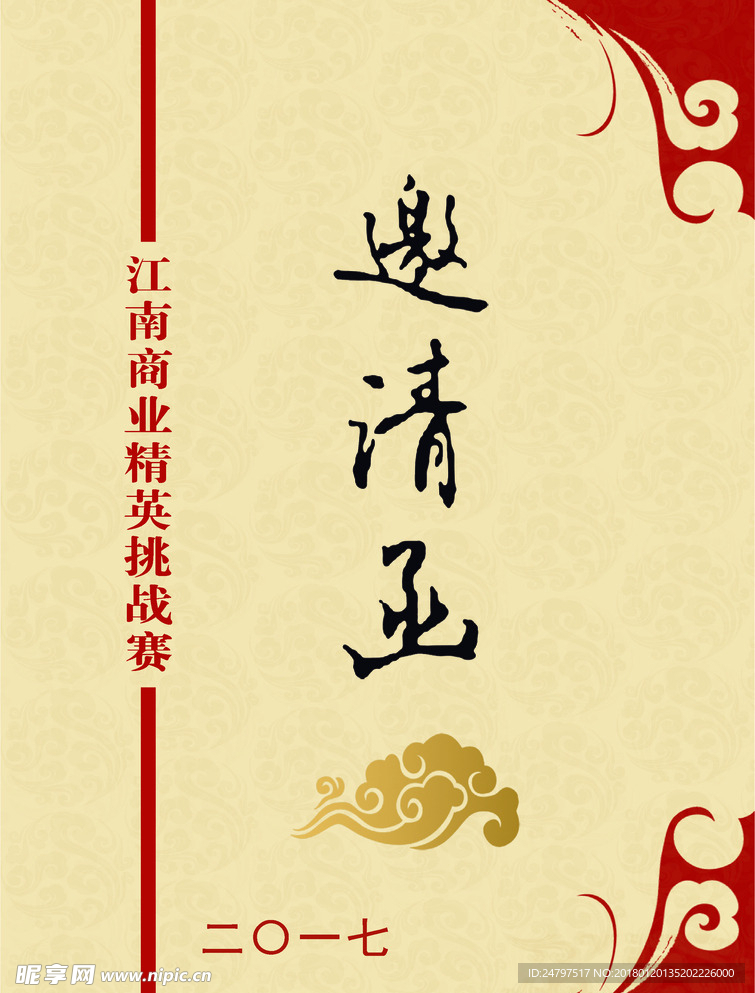 江南商业精英挑战赛
邀请函
二〇一七
昵享网 www.nipic.cn
ID:24797517 NO:20180120135202226000